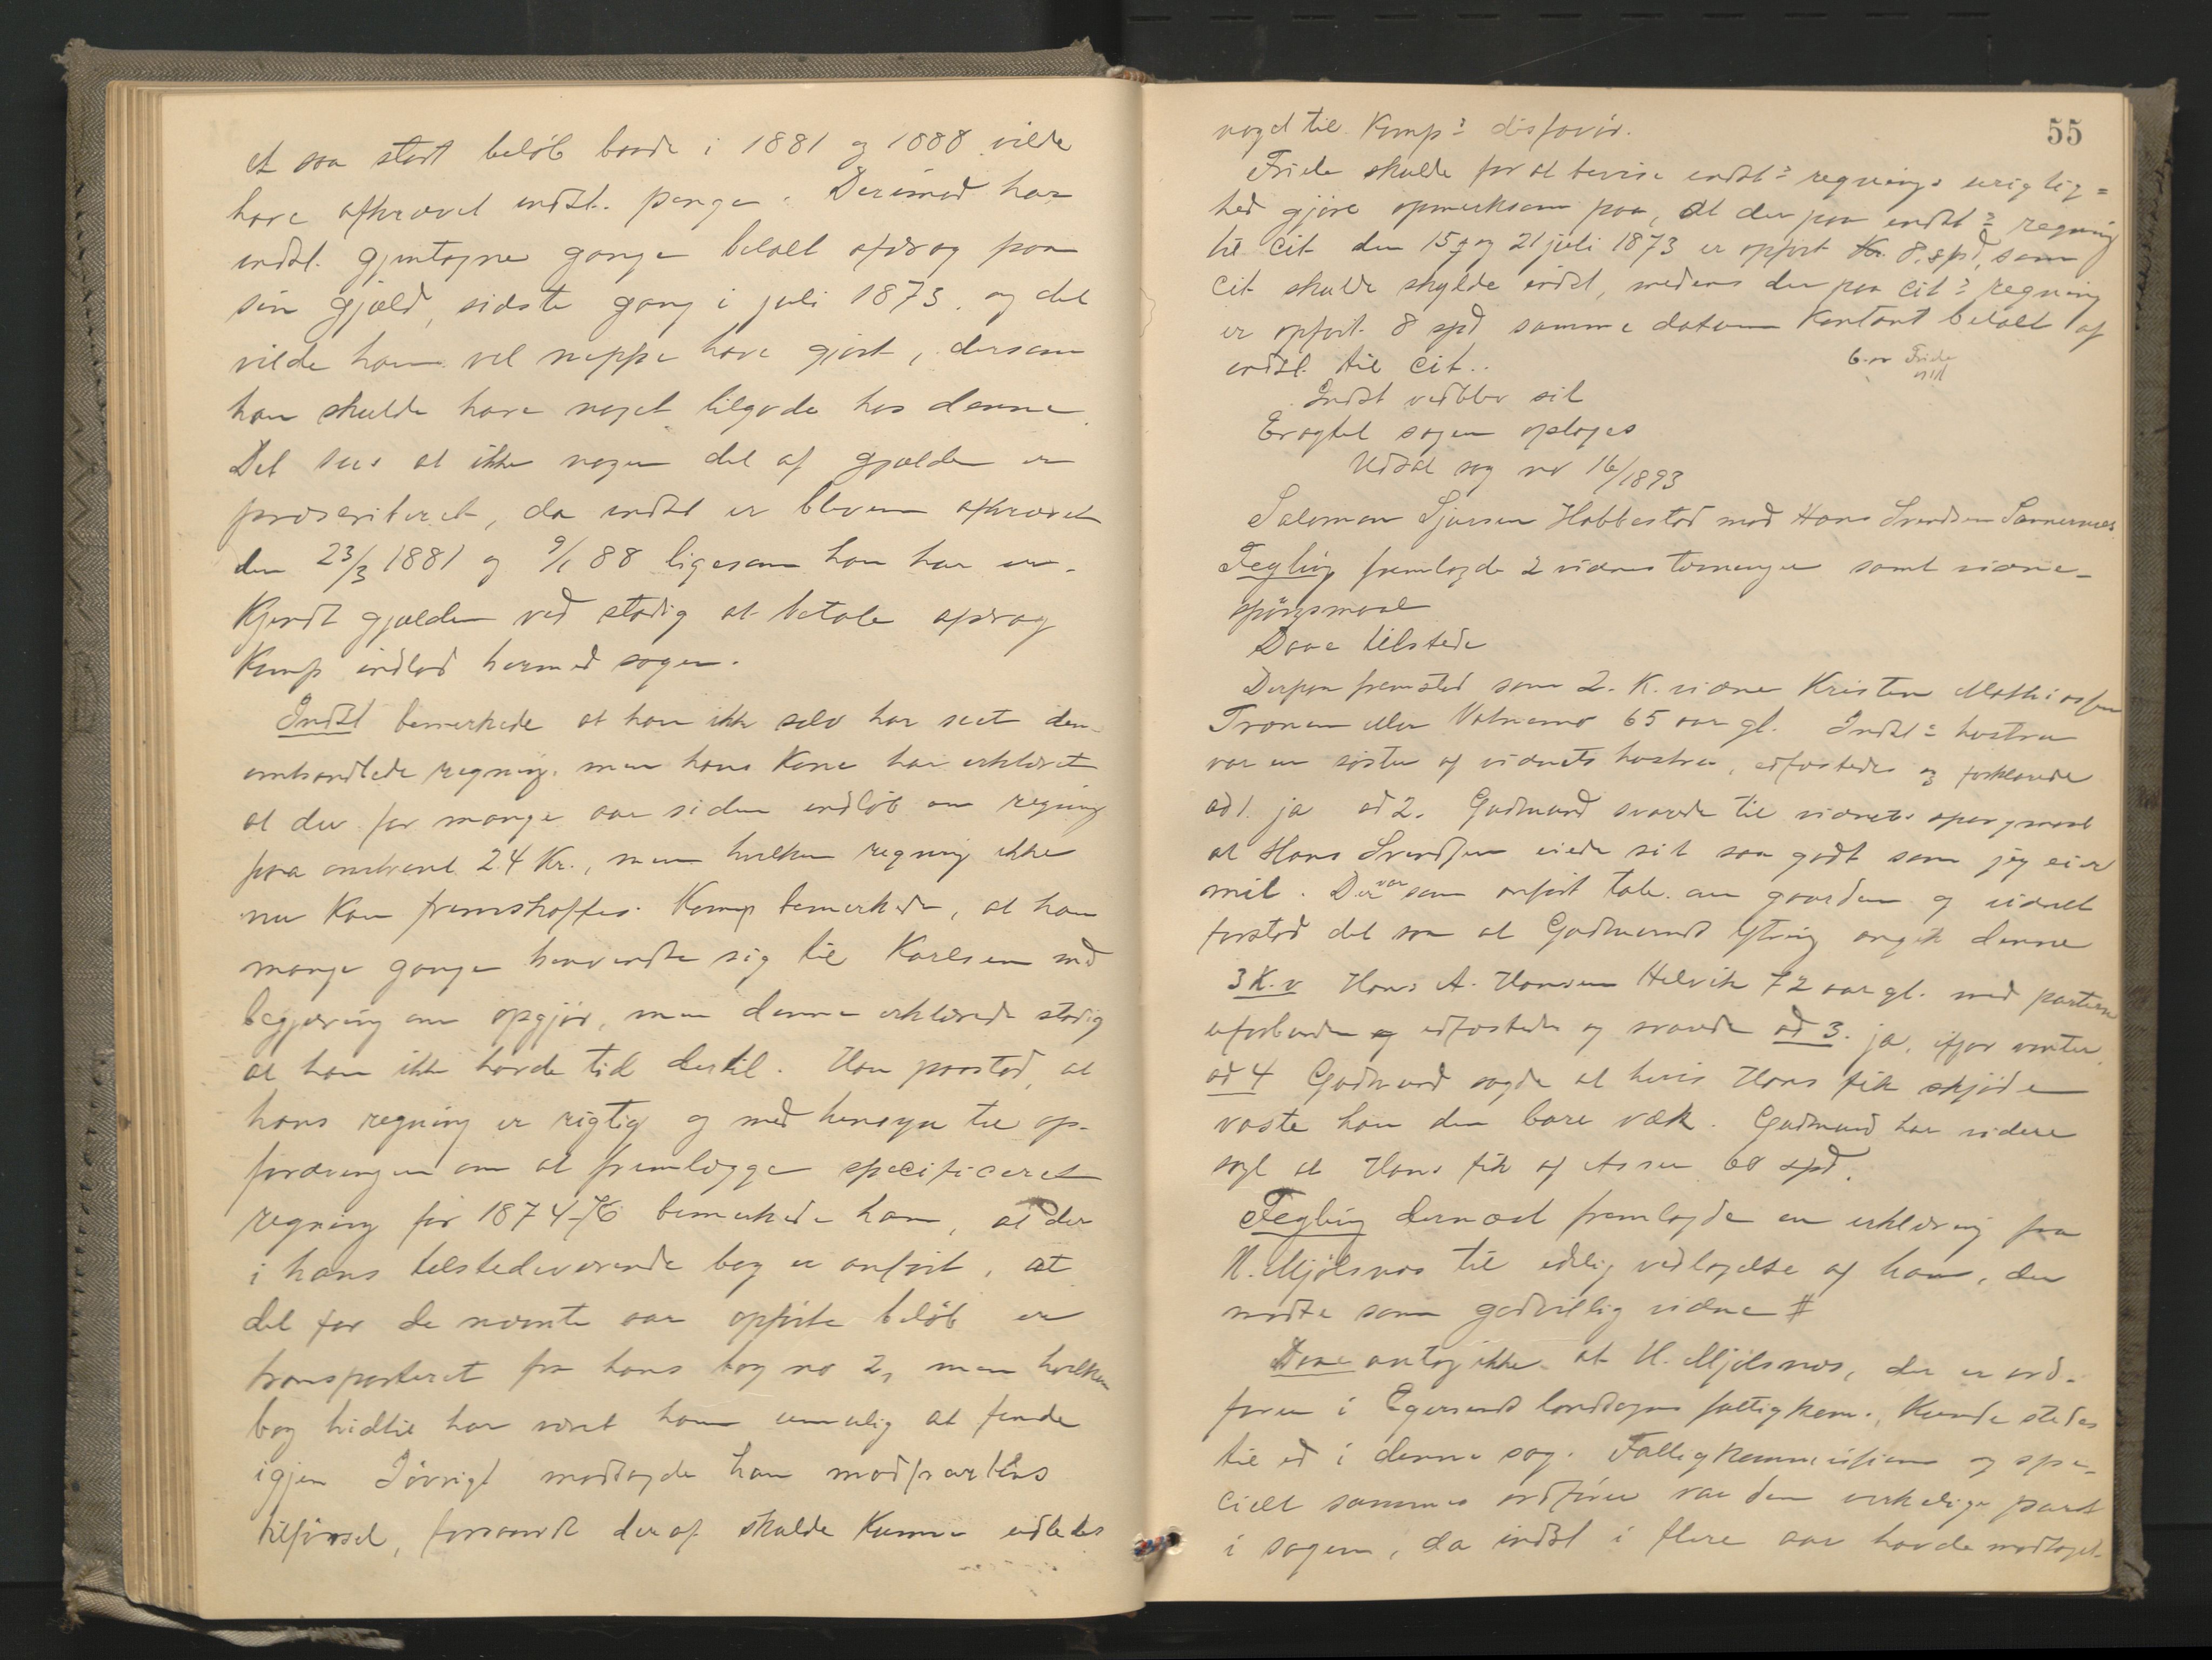 et saa stort beløb baade i 1881 og 1888 vilde
have afkrævet indst. penge. Derimod har
indst. gjentagne gange betalt afdrag paa
sin gjæld, sidste gang i juli 1873. og det
vilde han vel neppe have gjort, dersom
han skulde have noget tilgode hos denne.
Det sees at ikke nogen del af gjælden er
præscriberet, da indst er bleven afkrævet
den 23/3 1881 og 9/1 88 ligesom han har er-
kjendt gjælden ved stadig at betale afdrag
Kemp indlod hermed sagen.
Indst bemerkede at han ikke selv har seet den
omhandlede regning, men hans kone har erklæret
at der for mange aar siden indløb en regning
paa omtrent 24 Kr., men hvilken regning ikke
nu kan fremskaffes. Kemp bemerkede, at han
mange gange henvendte sig til Karlsen med
begjæring om opgjør, men denne erklærede stadig
at han ikke havde tid dertil. Han paastod, at
hans regning er rigtig og med hensyn til op-
fordringen om at fremlægge specificeret
regning for 1874-76 bemerkede han, at der
i hans tilstedeværende bog er anført, at
det for de nævnte aar opførte beløb er
transporteret fra hans bog no 2, men hvilken
bog hidtil har været ham umulig at finde
igjen Iøvrigt modsagde han modpartens
tilførsel, forsaavidt deraf skulde kunne udledes
55
noget til Kemps disfavør.
Friele skulde for at bevise indst.s regnings urigtig=
hed gjøre opmerksom paa, at der paa indst.s regning
til Cit den 15 og 21 juli 1873 er opført Kr. 8 spd, som
Cit skulde skylde indst, medens der paa Cit.s regning
er opført 8 spd samme datum kontant betalt af
indst. til Cit..
Indst vedblev sit
Eragtet sagen optages
Udsat sag no 16/1893
Salomon Sjursen Hobbestad mod Hans Svendsen
Tegling fremlagde 2 vidnestevninger samt vidne-
spørgsmaal
Daae tilstede
Derpaa fremstod som 2. K. vidne Kristen Mathiassen
Tronen eller Vatnemo 65 aar gl. Indst.s hustru
var en søster af vidnets hustru, edfæstedes og forklarede
ad 1. ja ad 2. Gudmund svarede til vidnets spørgsmaal
at Hans Svendsen eiede sit saa godt som jeg eier
mit. Der var som anført tale om gaarden og vidnet
forstod det saa at Gudmunds ytring angik denne
3 K. v Hans A. Hansen Helvik 72 aar gl. med parterne
uforbunden og edfæstedes og svarede ad 3. ja, ifjor vinter.
ad 4 Gudmund sagde at hvis Hans fik skjøde
vaste han den bare væk. Gudmund har videre
sagt at Hans fik af Asser 60 spd.
Tegling dernæst fremlagde en erklæring fra
H. Mjølsnes til edelig vedtagelse af ham, der
mødte som godvillig vidne #
Daae antog ikke at H. Mjølsnes, der er ord-
fører i Egersunds landsogns fattigkom., kunde stedes
til ed i denne sag. Fattigkommissionen og spe-
cielt sammes ordfører var den virkelige part
i sagen, da indst i flere aar havde modtaget